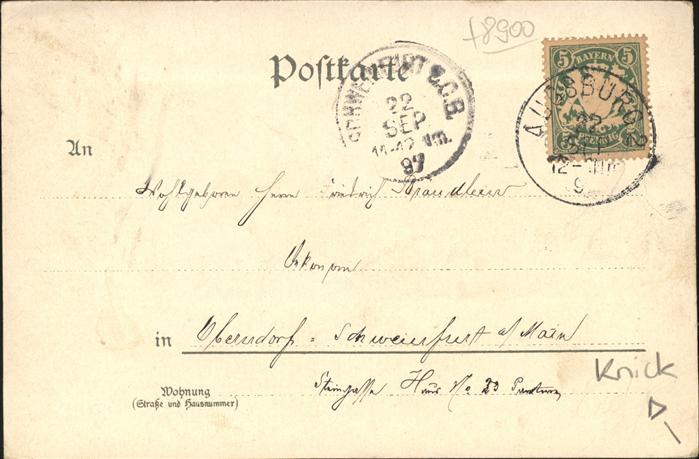 +8900
Postkarte
5 BAYERN 5
SCHWEINFURT C.G.B.
22
SEP
11-12 Vm.
97
AUGSBURG 2
22
SEP
12-
9
An
Wohlgeboren Herrn Friedrich
Oekonom
in Oberndorf = Schweinfurt a/ Main
Wohnung
(Straße und Hausnummer)
Steingasse Haus No 23
Knick